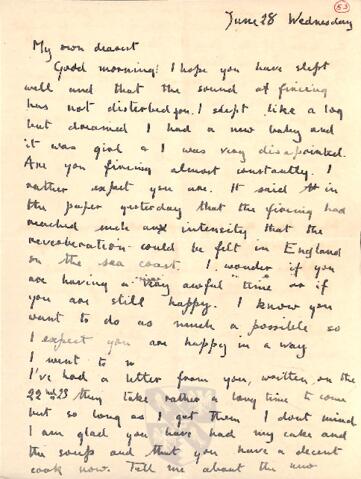 53
June 28 Wednesday
My own dearest
Good morning! I hope you have slept
well and that the sound of fireing
has not disterbed you. I slept like a log
but dreamed I had a new baby and
it was girl & I was very disapointed.
Are you fireing almost constantly. I
rather expect you are. It said in
the paper yesterday that the fireing had
reached such an intensity that the
reverberation could be felt in England
on the sea coast. I wonder if you
are having a "very awful" time or if
you are still happy. I know you
want to do as much a possible so
I expect you are happy in a way
I went to
I've had a letter from you, written on the
22nd-23 they take rather a long time to come
but so long as I get them I dont mind
I am glad you have had my cake and
the soups and that you have a decent
cook now. Tell me about the new